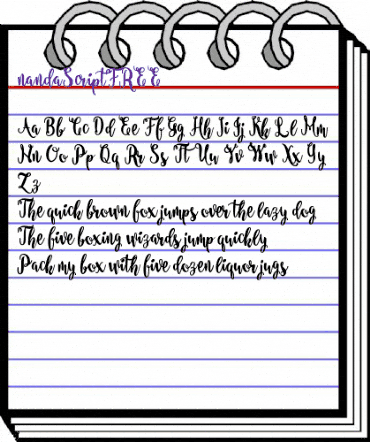 nandaScriptFREE
Aa Bb Cc Dd Ee Ff Gg Hh Ii Jj Kk Ll Mm
Nn Oo Pp Qq Rr Ss Tt Uu Vv Ww Xx Yy
Zz
The quick brown fox jumps over the lazy dog
The five boxing wizards jump quickly
Pack my box with five dozen liquor jugs